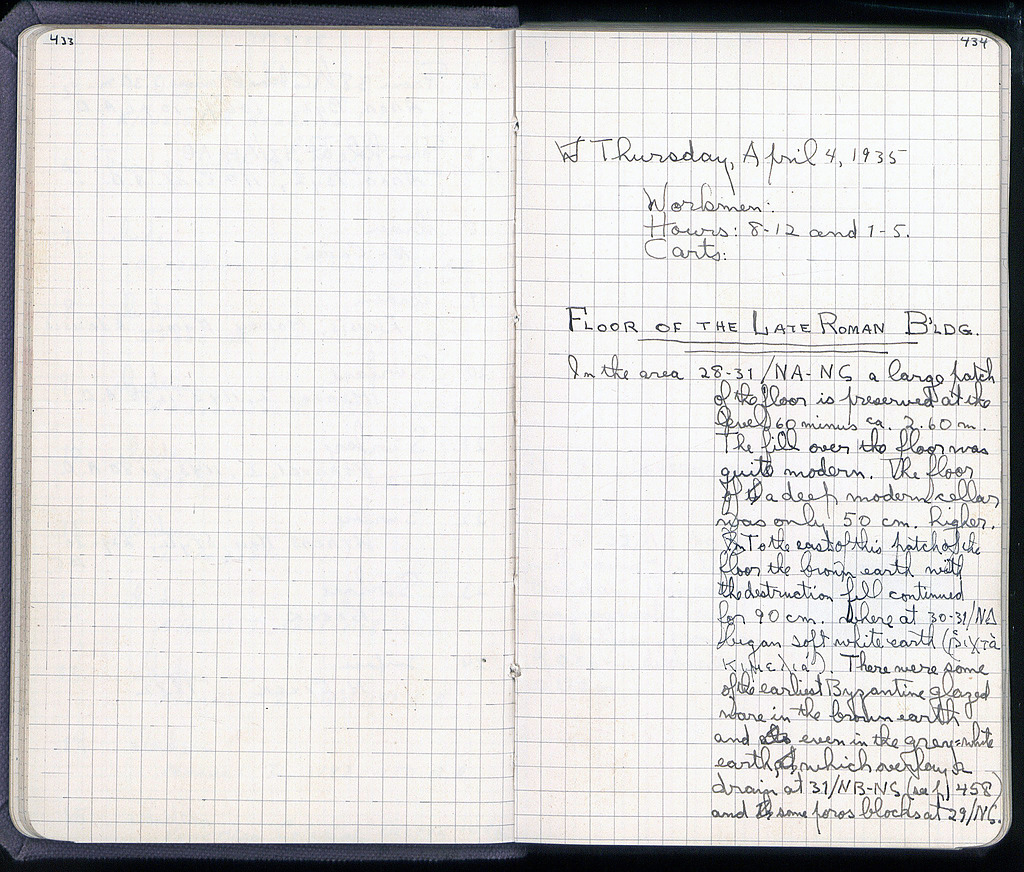 433
434
Thursday, April 4, 1935
Workmen:
Hours: 8-12 and 1-5.
Carts:
FLOOR OF THE LATE ROMAN B'LDG.
In the area 28-31/NA-NG a large patch
of the floor is preserved at the
level 60 minus ca. 3.60 m.
The fill over the floor was
quite modern. The floor
of a deep modern cellar
was only 50 cm. higher.
To the east of this patch of the
floor the brown earth with
the destruction fill continued
for 90 cm. where at 30-31/NA
began soft white earth (ῥιχτὰ
). There were some
of the earliest Byzantine glazed
ware in the brown earth
and even in the grey-white
earth, which overlay a
drain at 31/NB-NG (see p. 458)
and some poros blocks at 29/NG.